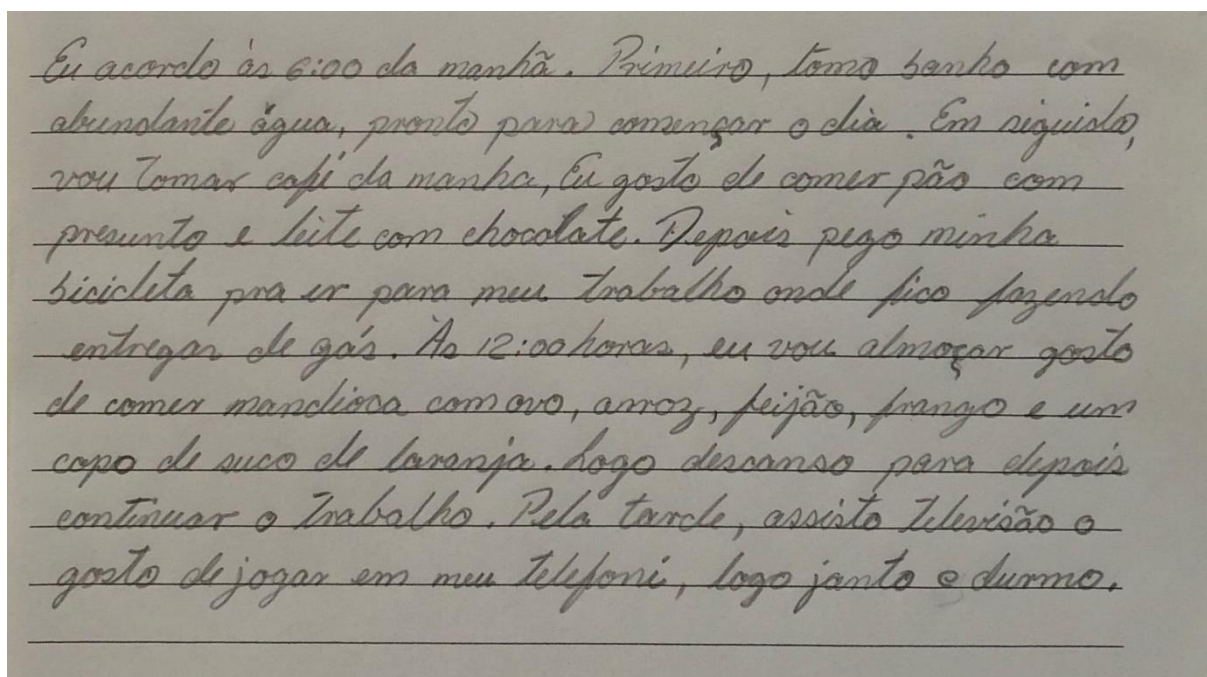 Eu acordo às 6:00 da manhã. Primeiro, tomo banho com
abundante água, pronto para començar o dia. Em siguida,
vou tomar café da manha, Eu gosto de comer pão com
presunto e leite com chocolate. Depois pego minha
bicicleta pra ir para meu trabalho onde fico fazendo
entregas de gás. Às 12:00 horas, eu vou almoçar gosto
de comer mandioca com ovo, arroz, feijão, frango e um
copo de suco de laranja. Logo descanso para depois
continuar o trabalho. Pela tarde, assisto televisão o
gosto de jogar em meu telefoni, logo janto e durmo.